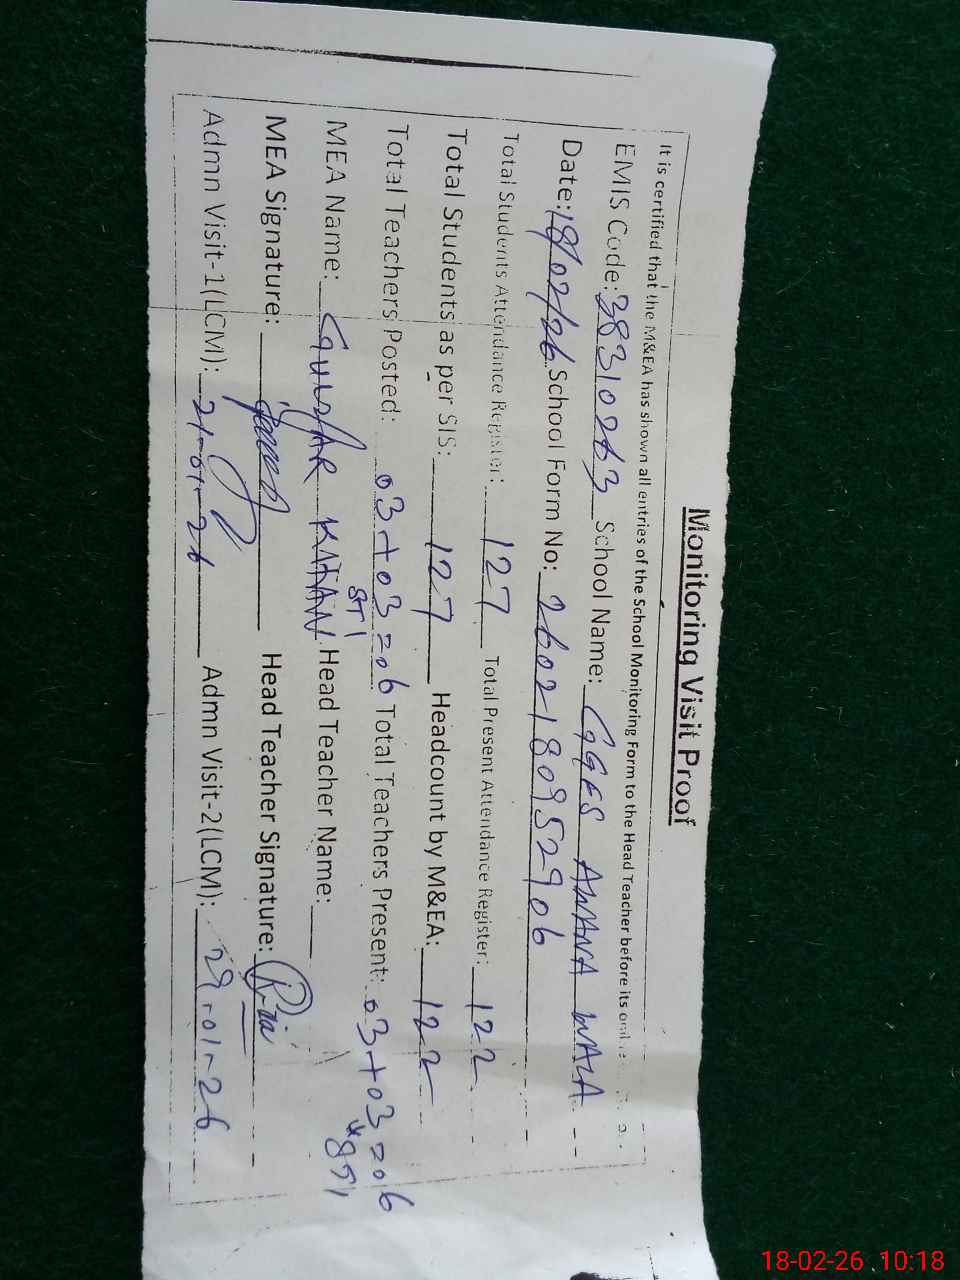 Monitoring Visit Proof
It is certified that the M&EA has shown all entries of the School Monitoring Form to the Head Teacher before its
EMIS Code: 38310263 School Name: GGES AWANA WALA
Date: 18/02/26 School Form No: 2602180952906
Total Students Attendance Register: 127 Total Present Attendance Register: 122
Total Students as per SIS: 127 Headcount by M&EA: 122
Total Teachers Posted: 03+03=06 Total Teachers Present: 03+03=06
STI
MEA Name: GULZAR Head Teacher Name:
MEA Signature: Head Teacher Signature:
Admn Visit-1(LCM): 21-01-26 Admn Visit-2(LCM): 29-01-26
18-02-26 10:18